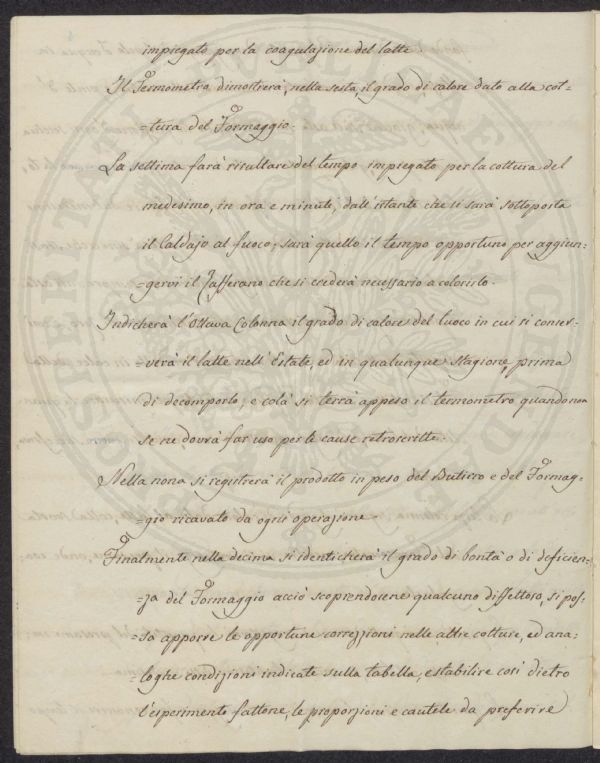 impiegato per la coagulazione del latte.
Il Termometro dimostrerà, nella sesta, il grado di calore dato alla cot=
=tura del Formaggio.
La settima farà risultare del tempo impiegato per la cottura del
medesimo, in ora e minuti, dall'istante che si sarà sottoposta
il Caldajo al fuoco; sarà quello il tempo opportuno per aggiun=
=gervi il Zafferano che si crederà necessario a colorirlo.
Indicherà l'Ottava Colonna il grado di calore del luoco in cui si conser=
=verà il latte nell'Estate, ed in qualunque Stagione, prima
di decomporlo; e colà si terrà appeso il termometro quando non
se ne dovrà far uso per le cause retroscritte.
Nella nona si registrerà il prodotto in peso del Butirro e del Formag=
=gio ricavato da ogni operazione.
Finalmente nella decima si identicherà il grado di bontà o di deficien=
=za del Formaggio acciò scoprendosene qualcuno diffettoso, si pos=
=sa apporre le opportune correzzioni nelle altre cotture, ed ana=
=loghe condizioni indicate sulla tabella, e stabilire così dietro
l'esperimento fattone, le proporzioni e cautele da preferire
POSTERITATI